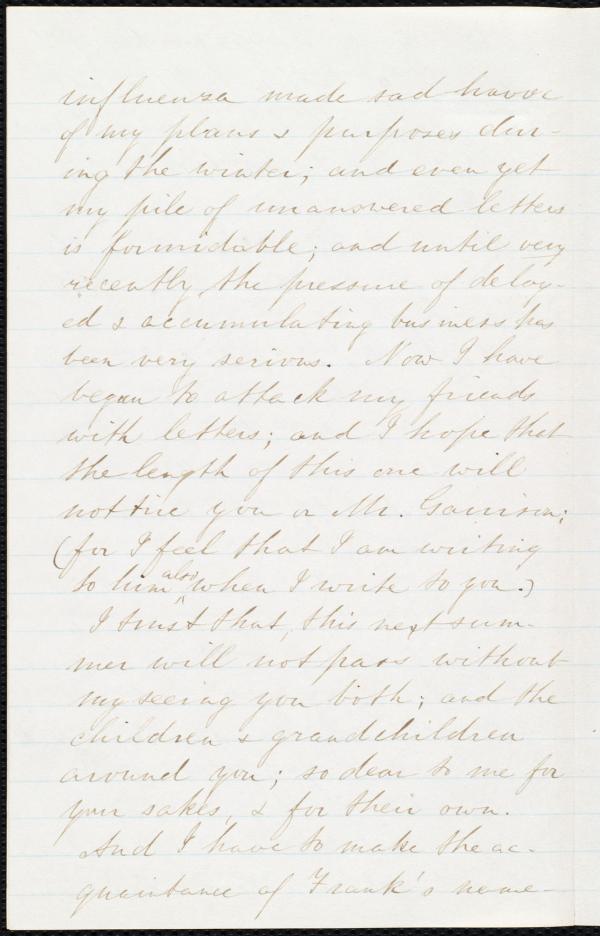 influenza made sad havoc
of my plans & purposes dur-
ing the winter; and even yet
my pile of unanswered letters
is formidable; and until very
recently, the pressure of delay-
ed & accumulating business has
been very serious. Now I have
begun to attack my friends
with letters; and I hope that
the length of this one will
not tire you or Mr. Garrison;
(for I feel that I am writing
to him also when I write to you.)
I trust that, this next sum-
mer will not pass without
my seeing you both; and the
children & grandchildren
around you; so dear to me for
your sakes, & for their own.
And I have to make the ac-
quaintance of Frank's name-